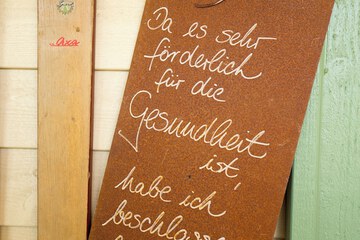 Da es sehr
förderlich
für die
Gesundheit
ist,
habe ich